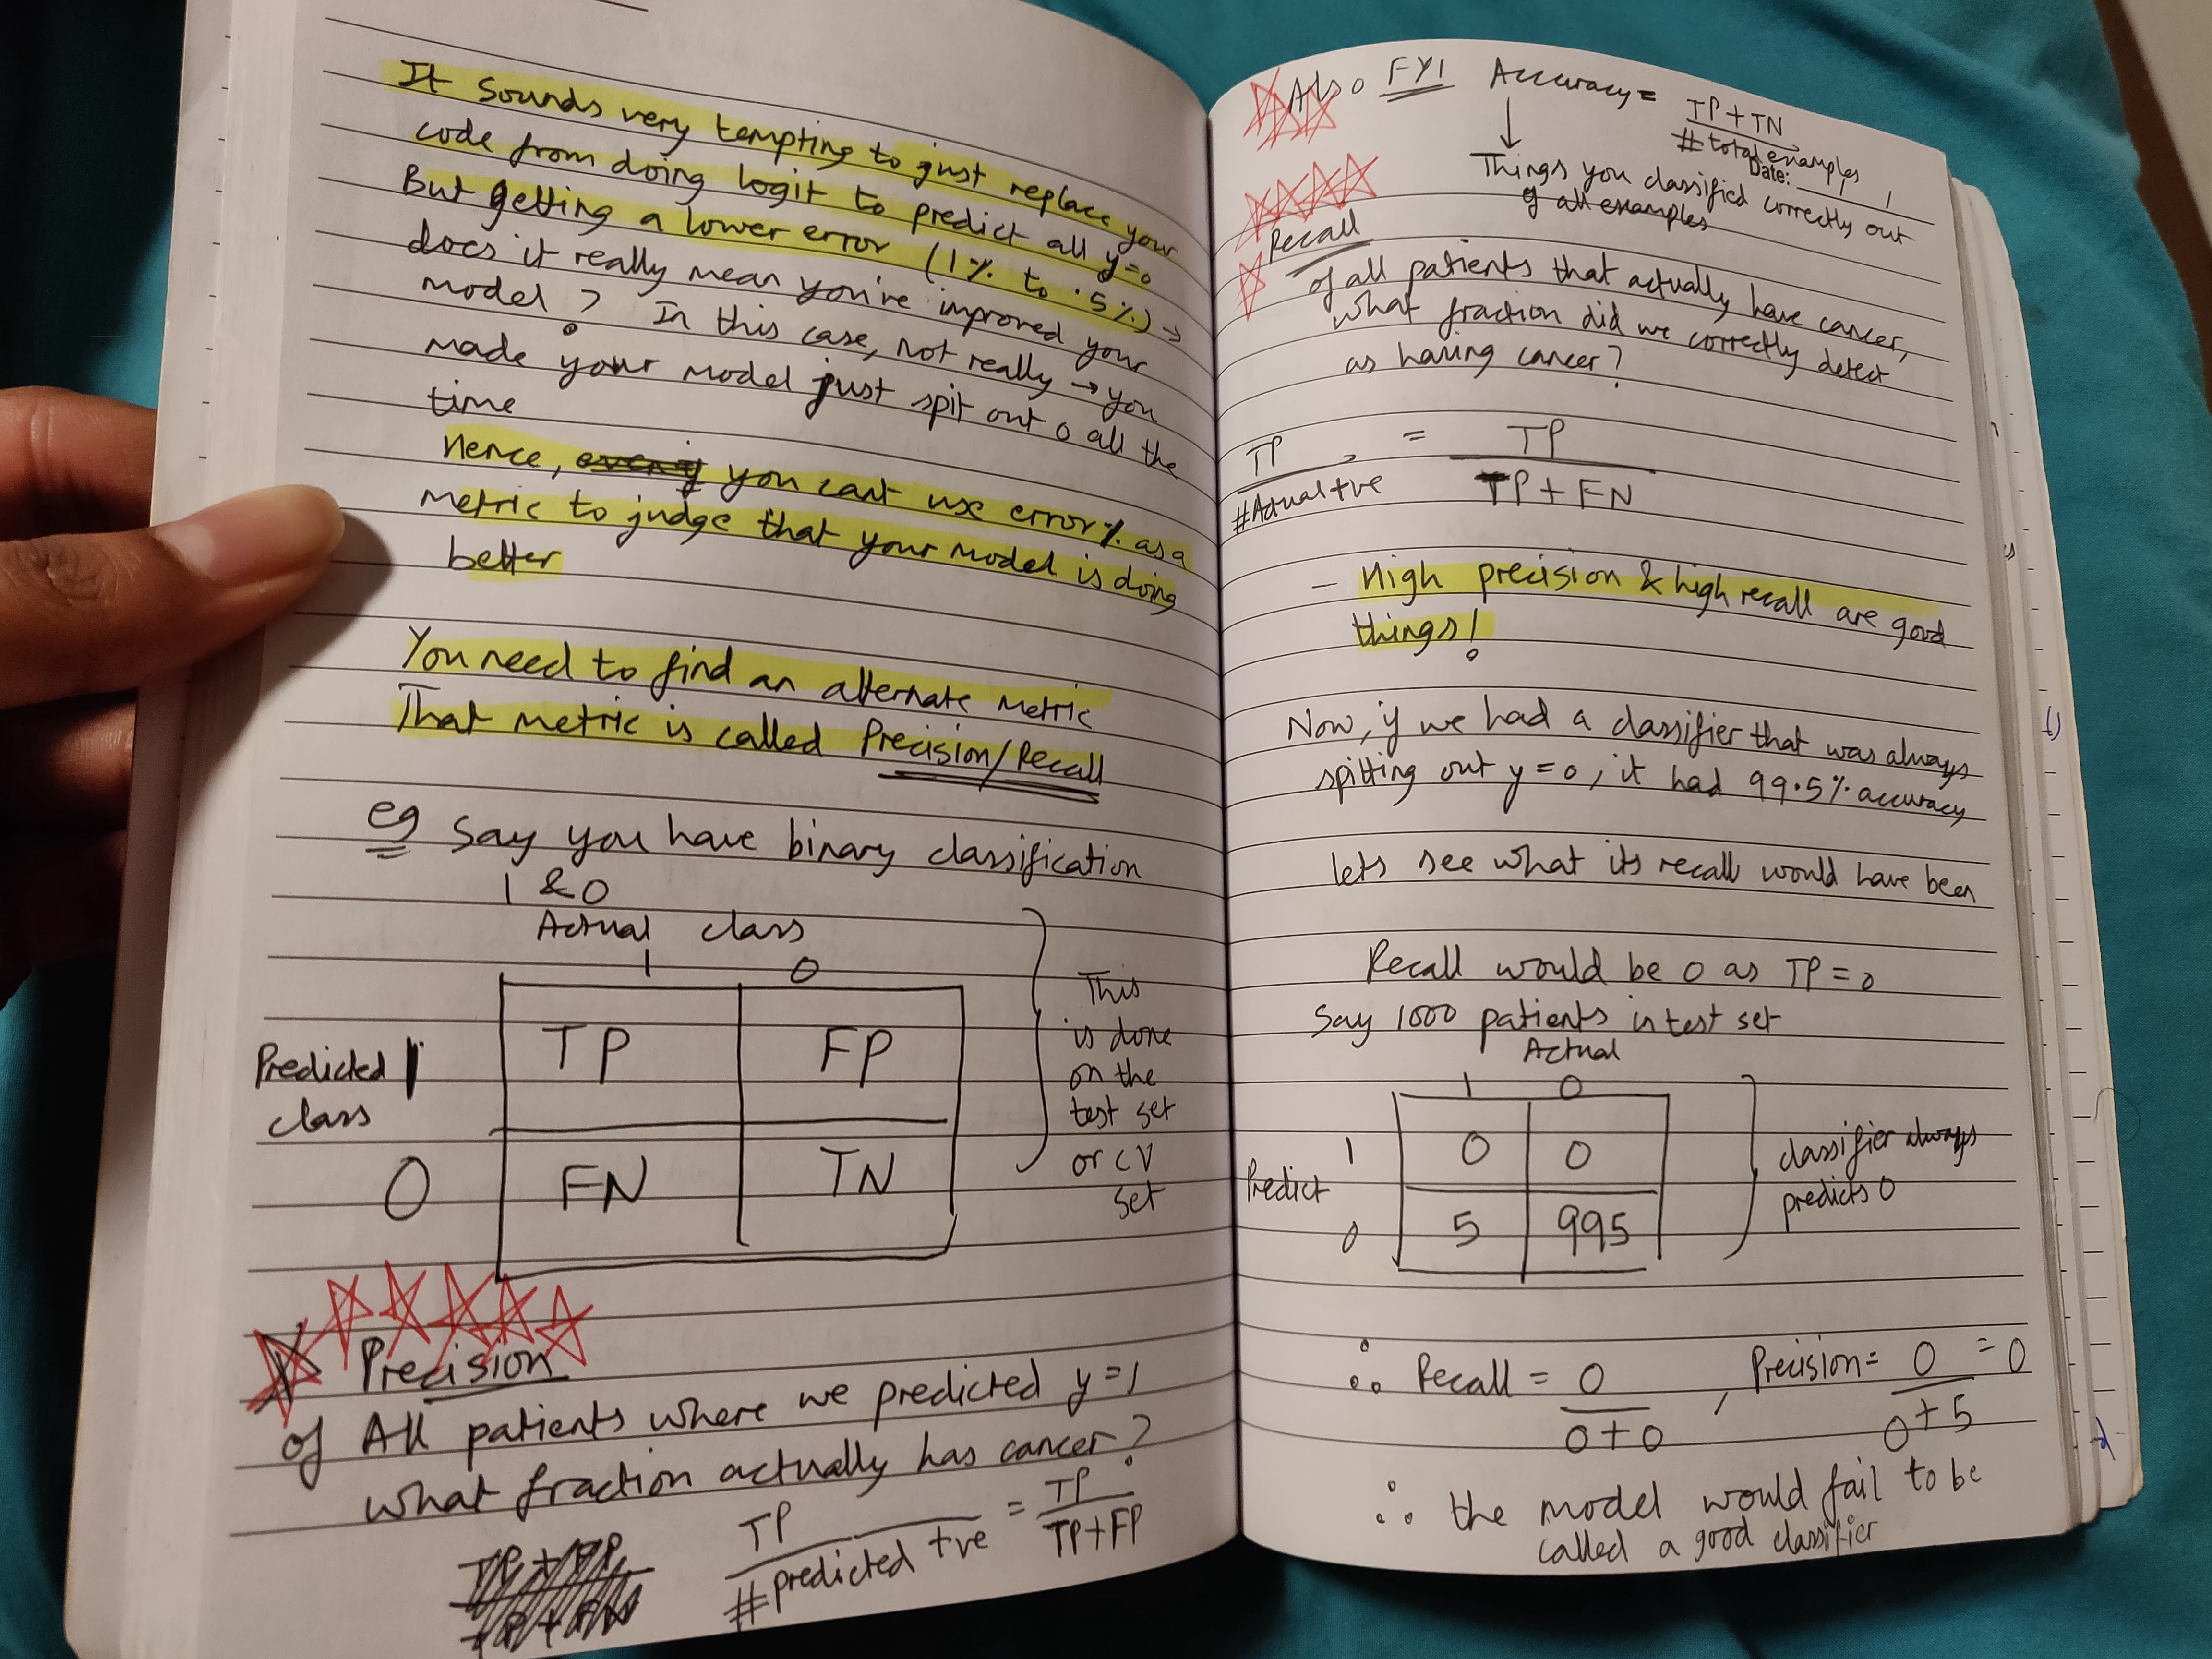 It sounds very tempting to just replace your
code from doing logit to predict all y=0
But getting a lower error (1% to .5%) →
does it really mean you've improved your
model? In this case, not really → you
made your model just spit out 0 all the
time
Hence, you cant use error % as a
metric to judge that your model is doing
better
You need to find an alternate metric
That metric is called Precision/Recall
eg Say you have binary classification
1 & 0
Actual class
1 0
Predicted 1 TP FP
class
0 FN TN
This
is done
on the
test set
or CV
set
Precision
of All patients where we predicted y=1
what fraction actually has cancer?
TP / #predicted +ve = TP / TP+FP
Also FYI Accuracy = TP+TN / #total examples
Date:
↓
Things you classified correctly out
of all examples
Recall
of all patients that actually have cancer,
what fraction did we correctly detect
as having cancer?
TP / #Actual +ve = TP / TP+FN
- High precision & high recall are good
things!
Now, if we had a classifier that was always
spitting out y=0, it had 99.5% accuracy
lets see what its recall would have been
Recall would be 0 as TP=0
Say 1000 patients in test set
Actual
1 0
1 0 0
Predict
0 5 995
classifier always
predicts 0
∴ Recall = 0 / 0+0 , Precision = 0 / 0+5 = 0
∴ the model would fail to be
called a good classifier